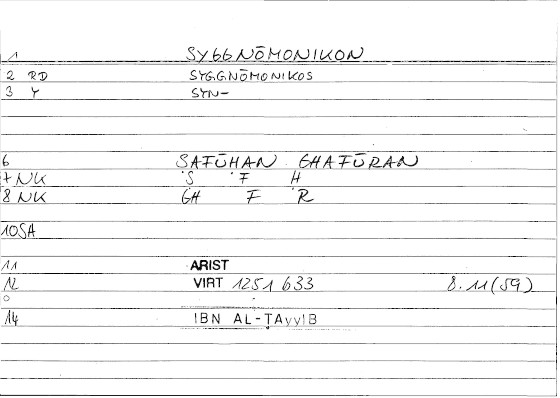 1 SYGGNŌMONIKON
2 RD SYGGNŌMONIKOS
3 Y SYN-
6 SAFŪHAN GHAFŪRAN
7 NK 'S 'F H
8 NK GH F 'R
10 SA
11 ARIST
12 VIRT 1251 633 8.11 (59)
14 IBN AL-ṬAyyIB